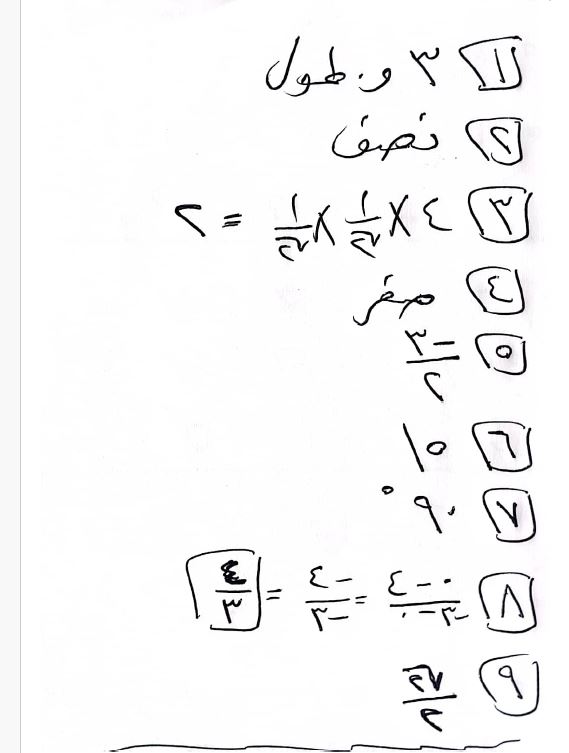 ١ ٣ و. طول
٢ نصف
٣ ٤ × ١/√٢ × ١/√٢ = ٢
٤ صفر
٥ -٣/٢
٦ ١٥
٧ ٩٠°
٨ ٠-٤/-٣-٠ = -٤/-٣ = ٤/٣
٩ √٢/٢